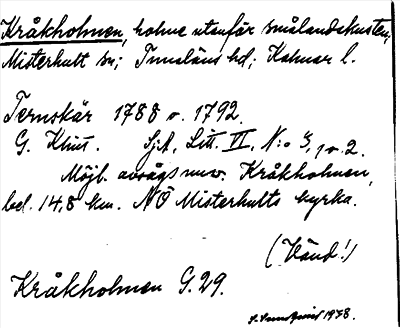 Kråkholmen, holme utanför smålandskusten,
Misterhult sn; Tunaläns hd; Kalmar l.
Ternskär 1788 o. 1792.
G. Klint. Sj.A, Litt. VI, N:o 3, 1 o. 2.
Möjl. avsågs nuv. Kråkholmen,
bel. 14,8 km. NÖ Misterhults kyrka.
(Vänd!)
Kråkholmen G.29.
1938.